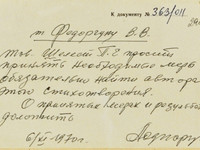 К документу № 363/оп.
т Федорчуку В.В.
тов. Шелест П.Е просит
принять необходимые меры
обязательно найти автора
этого стихотворения.
О принятых мерах и
доложить
6/VI 1970г.